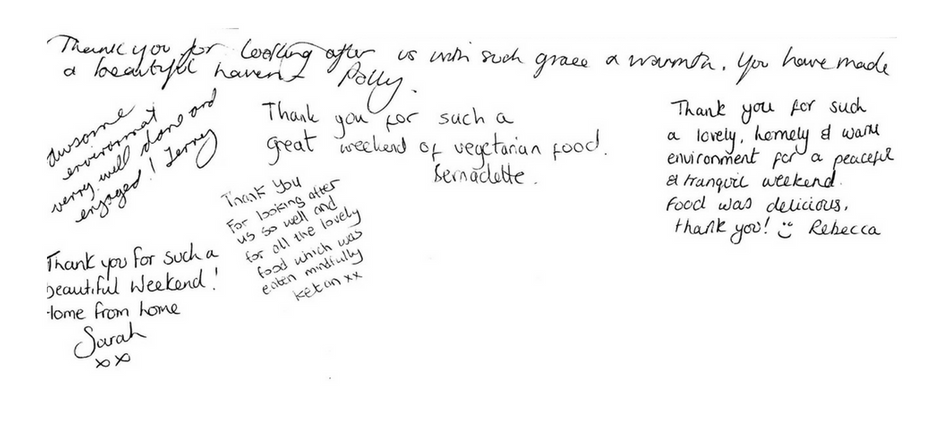 Thank you for looking after us with such grace & warmth. You have made
a beautiful haven Polly.
awsome
environmat
verry well done and
engaged! Jerry
Thank you for such a
great weekend of vegetarian food.
Bernadette.
Thank you for such
a lovely, homely & warm
environment for a peaceful
& tranquil weekend.
Food was delicious,
thank you! Rebecca
Thank You
For looking after
us so well and
for all the lovely
food which was
eaten mindfully
ketan xx
Thank you for such a
beautiful weekend!
Home from home
Sarah
xx